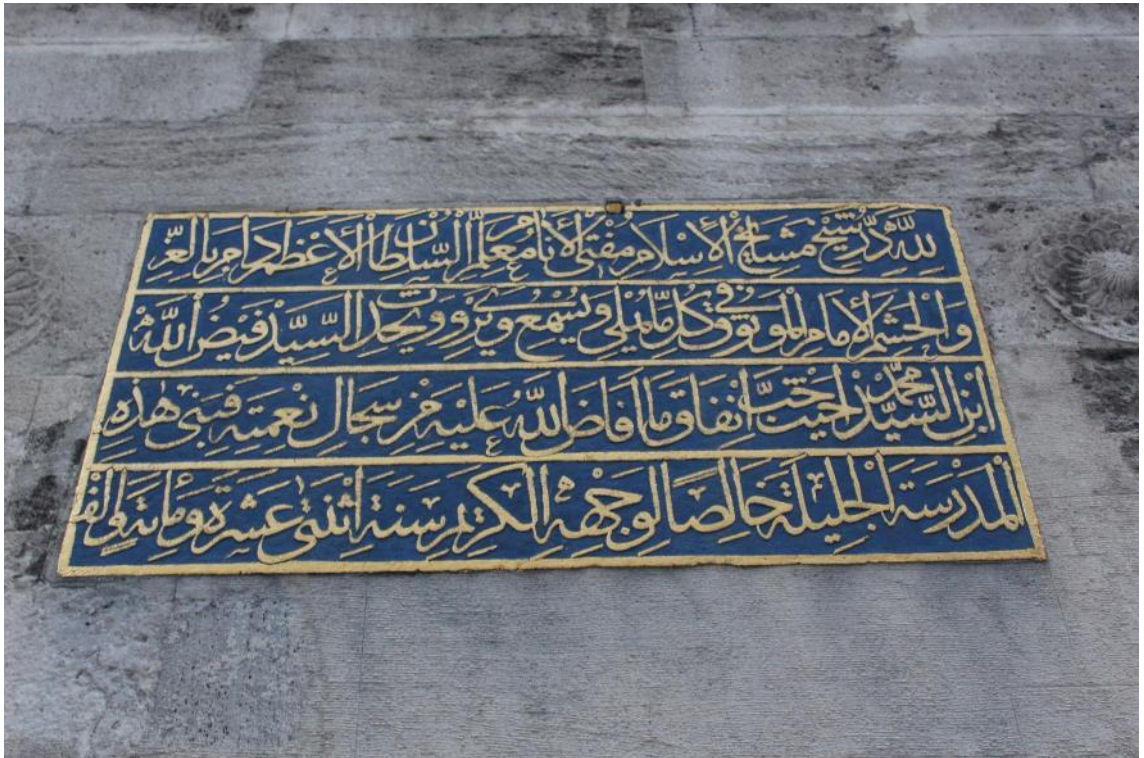 لله در شيخ مشايخ الإسلام مفتي الأنام معلم السلطان الأعظم دام بالعز
والحشم الإمام الموثوق في كل ما يملي ويسمع ويروي ويحدث السيد فيض الله
ابن السيد محمد أحب إنفاق ما أفاض الله عليه من سجال نعمته فبنى هذه
المدرسة الجليلة خالصا لوجهه الكريم سنة اثنتي عشرة ومائة وألف